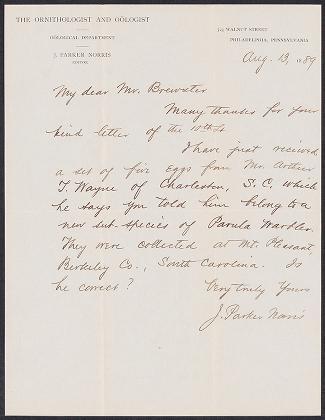 THE ORNITHOLOGIST AND OÖLOGIST
OÖLOGICAL DEPARTMENT
J. PARKER NORRIS
EDITOR
723 WALNUT STREET
PHILADELPHIA, PENNSYLVANIA
Aug. 13, 1889
My dear Mr. Brewster
Many thanks for your
kind letter of the 10th
I have just received
a set of five eggs from Mr. Arthur
T. Wayne of Charleston, S. C. which
he says you told him belong to a
new sub-species of Parula Warbler.
They were collected at Mt. Pleasant,
Berkeley Co., South Carolina. Is
he correct?
Very truly Yours
J. Parker Norris